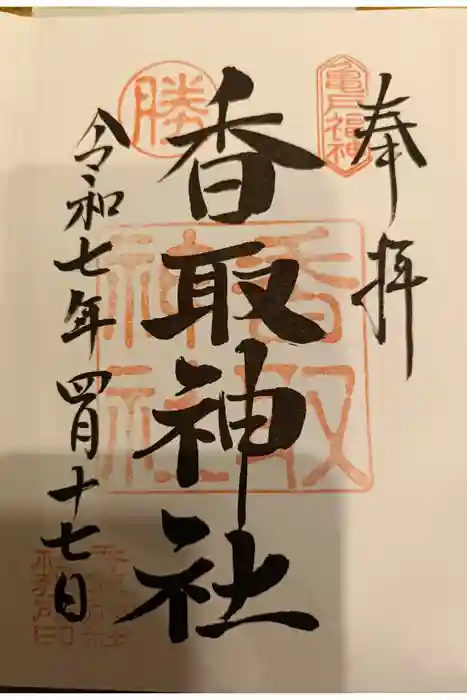 奉拝
亀戸福神
香取神社
勝
香取神社
令和七年四月十七日